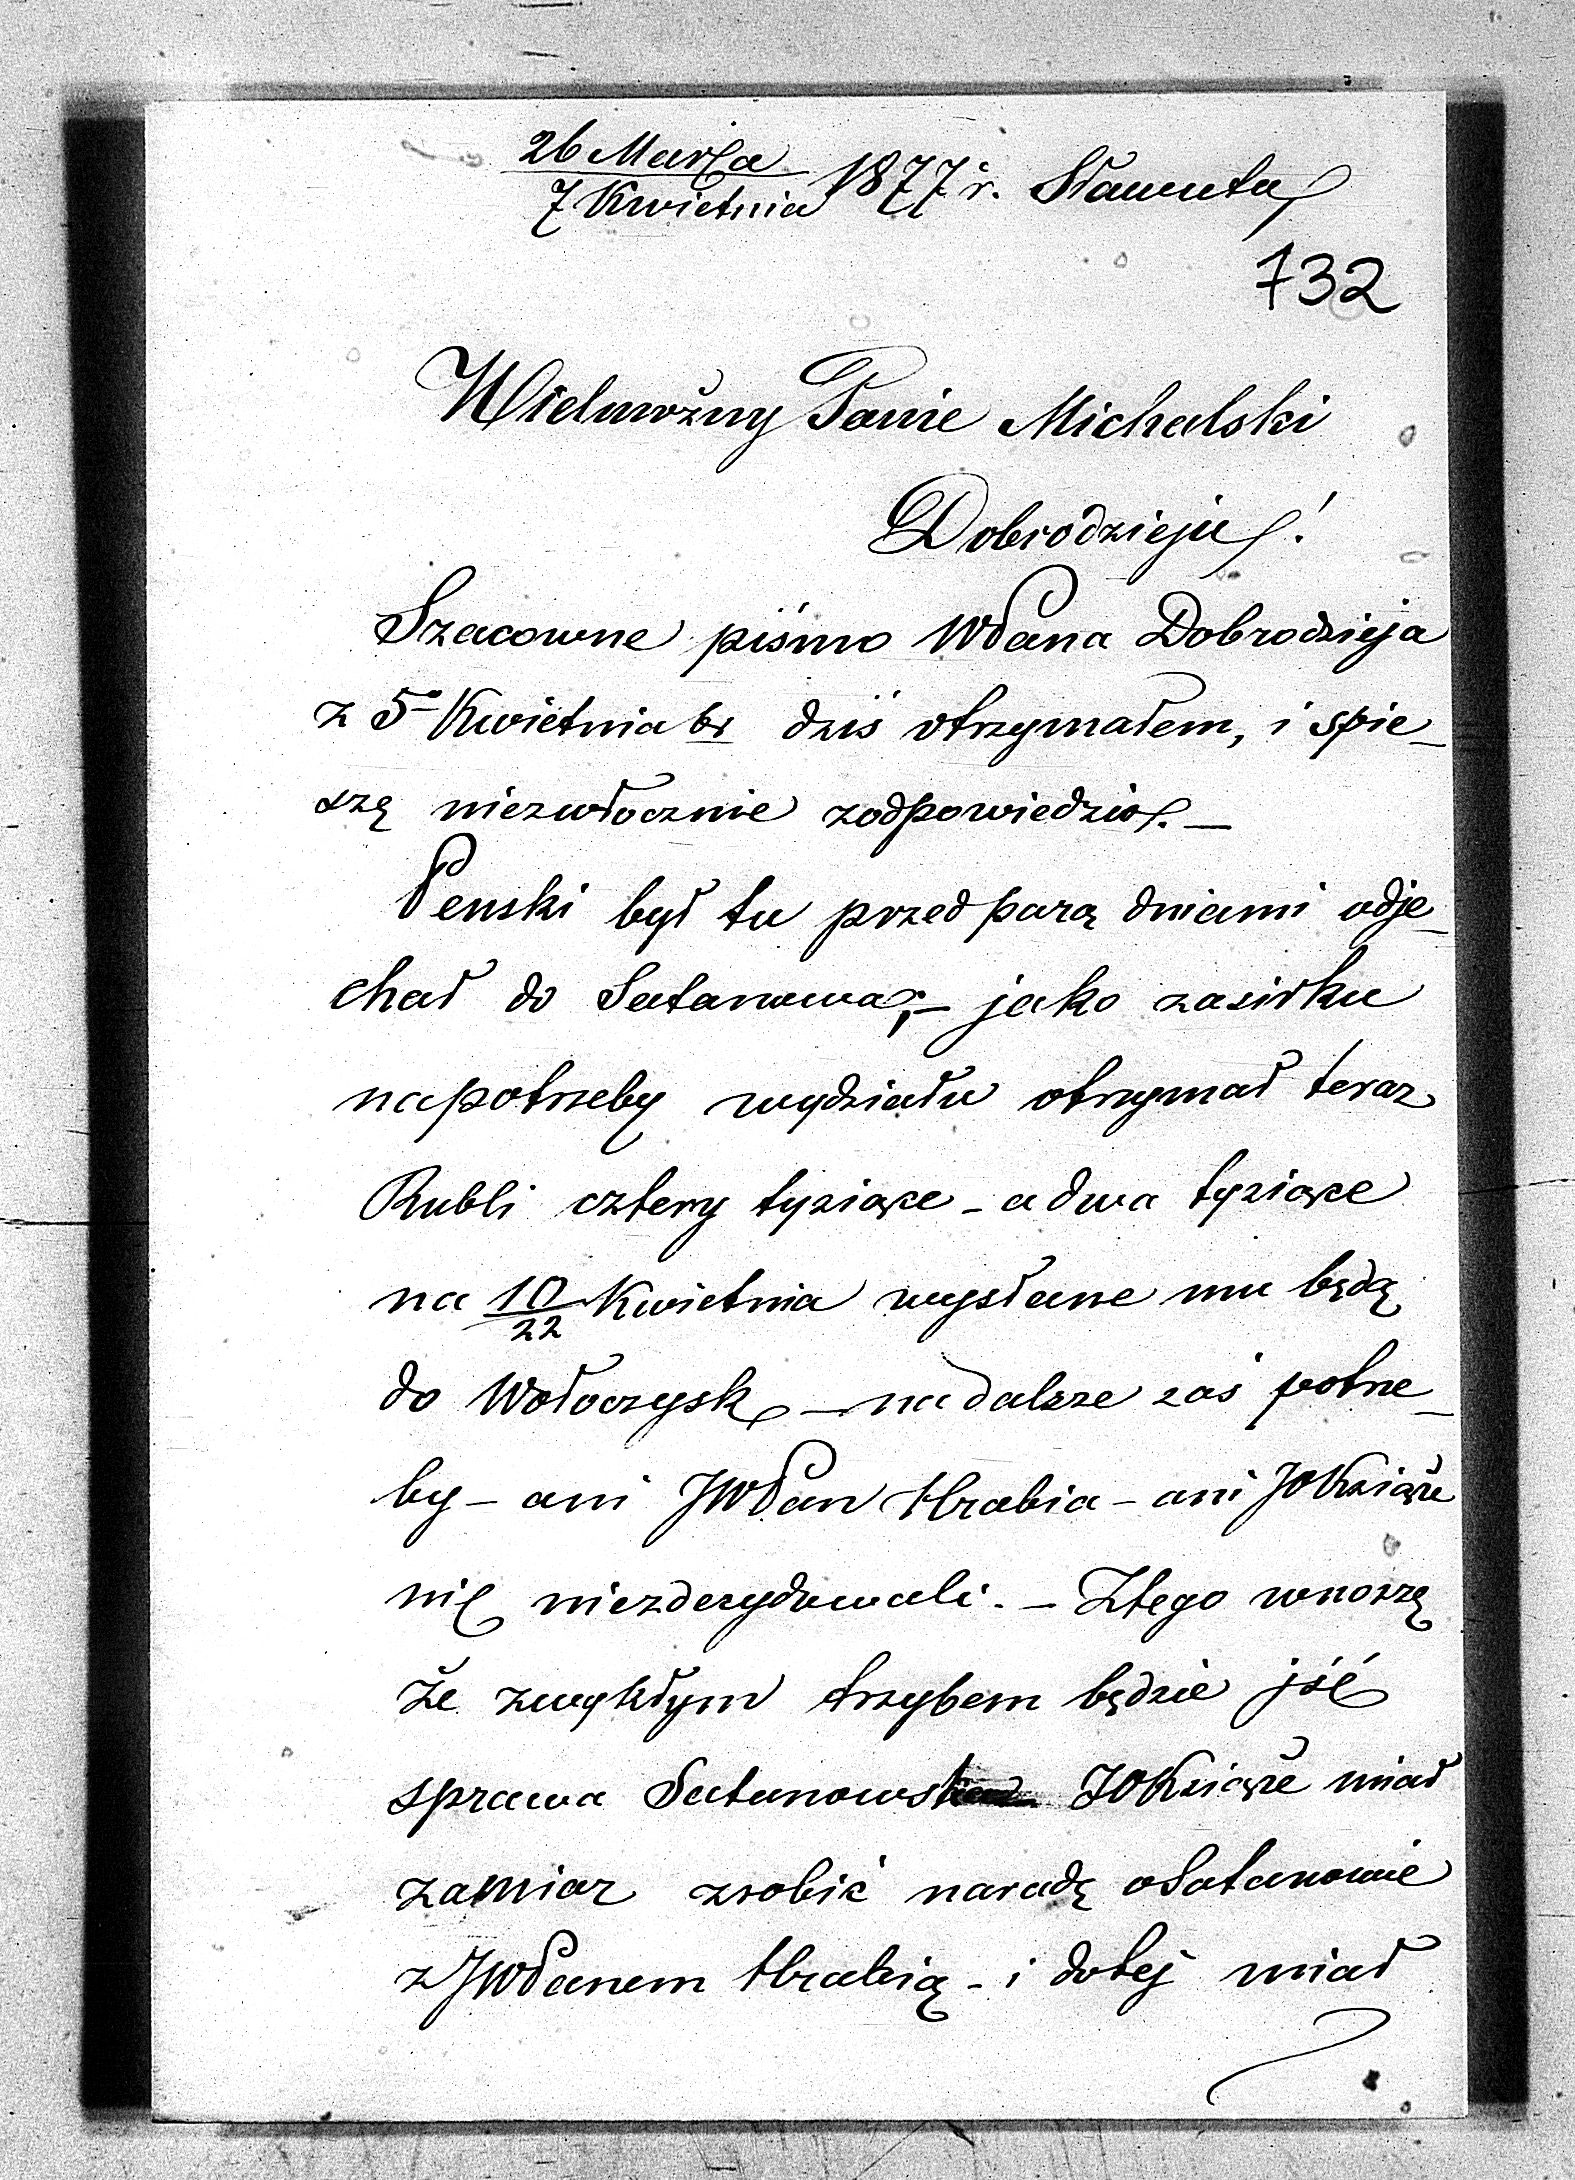 26 Marca
7 Kwietnia 1877 r. Sławuta
732
Wielmożny Panie Michalski
Dobrodzieju!
Szacowne piśmo WPana Dobrodzieja
z 5º Kwietnia br dziś otrzymałem, i spie_
szę niezwłocznie zodpowiedzią. _
Penski był tu przed parą dniami odje_
chał do Satanowa; _ jako zasiłku
napotrzeby wydziału otrzymał teraz
Rubli cztery tysiące _ a dwa tysiące
na 10/22 Kwietnia wysłane mu będą
do Wołoczysk _ nadalsze zaś potrze_
by _ ani JWPan Hrabia _ ani JOKsiąże
nic niezdecydowali. _ Ztego wnoszę
że zwykłym trzybem będzie jść
sprawa Satanowska JOKsiąże miał
zamiar zrobić naradę oSatanowie
zJWPanem Hrabią _ i dotej miał